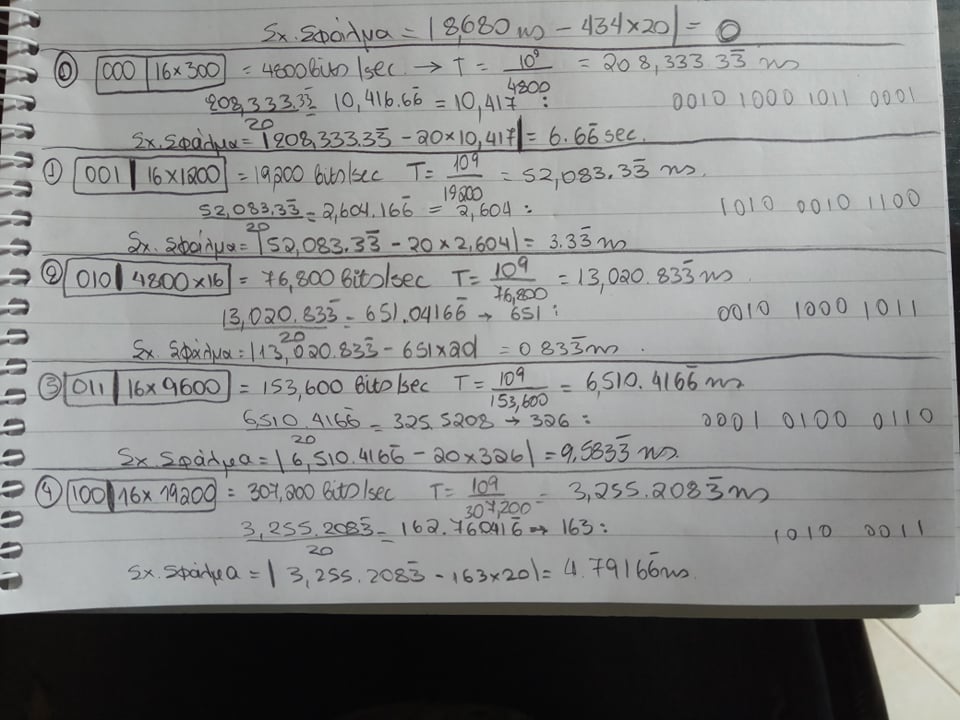 Σχ. Σφάλμα = |8,680 ns - 434×20| = 0
⓪ 000 | 16×300 = 4800 Bits/sec → T = 10⁹/4800 = 208,333.33̅ ns
208,333.33̅/20 10,416.66̅ = 10,417 : 0010 1000 1011 0001
Σχ. Σφάλμα = |208,333.33̅ - 20×10,417| = 6.66̅ sec.
① 001 | 16×1200 = 19,200 Bits/sec T = 10⁹/19200 = 52,083.33̅ ns.
52,083.33̅/20 = 2,604.166̅ = 2,604 : 1010 0010 1100
Σχ. Σφάλμα = |52,083.33̅ - 20×2,604| = 3.33̅ ns
② 010 | 4800×16 = 76,800 Bits/sec T = 10⁹/76,800 = 13,020.833̅ ns
13,020.833̅/20 = 651.04166̅ → 651 : 0010 1000 1011
Σχ. Σφάλμα = |13,020.833̅ - 651×20| = 0.833̅ ns.
③ 011 | 16×9600 = 153,600 Bits/sec T = 10⁹/153,600 = 6,510.4166̅ ns
6,510.4166̅/20 = 325.5208 → 326 : 0001 0100 0110
Σχ. Σφάλμα = |6,510.4166̅ - 20×326| = 9.5833̅ ns.
④ 100 | 16×19200 = 307,200 Bits/sec T = 10⁹/307,200 = 3,255.2083̅ ns
3,255.2083̅/20 = 162.760416̅ → 163 : 1010 0011
Σχ. Σφάλμα = |3,255.2083̅ - 163×20| = 4.79166̅ ns.